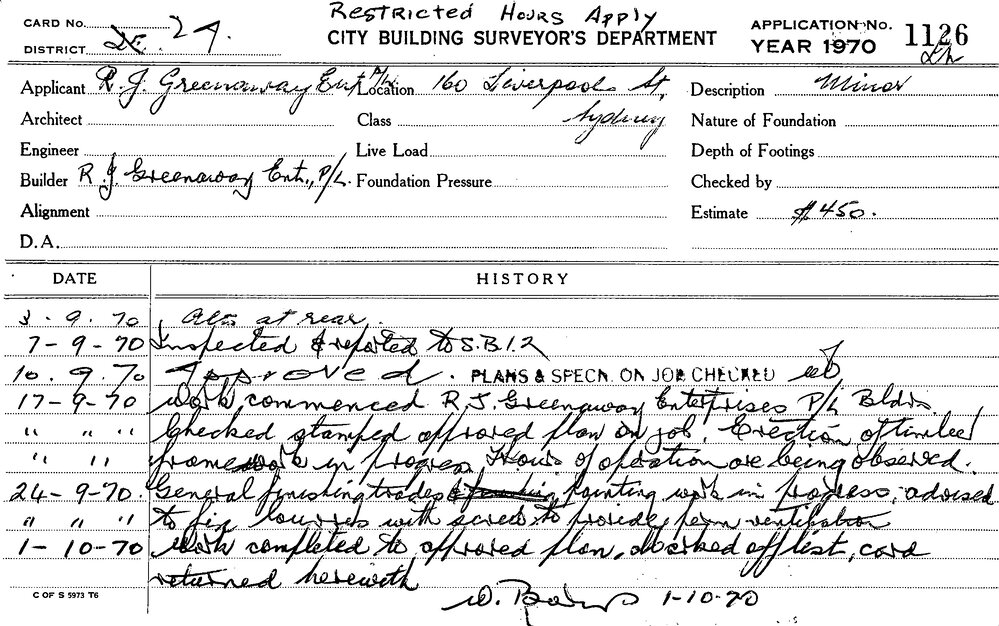 Restricted Hours Apply
CARD No. 24.
DISTRICT
CITY BUILDING SURVEYOR'S DEPARTMENT
APPLICATION No. 1126
YEAR 1970
Applicant R. J. Greenaway Ent P/L Location 160 Liverpool St, Description Minor
Architect Class Sydney Nature of Foundation
Engineer Live Load Depth of Footings
Builder R. J. Greenaway Entr., P/L. Foundation Pressure Checked by
Alignment Estimate $450.
D.A.
DATE HISTORY
3 - 9 . 70 Altns at rear.
7 - 9 - 70 Inspected & reported to S.B.I.2
10 . 9 . 70 Approved. PLANS & SPECN. ON JOB CHECKED
17 - 9 - 70 Work commenced R. J. Greenaway Enterprises P/L Bldrs.
" " " Checked stamped approved plan on job. Erection of timber
" " framework in progress, Hours of operation are being observed.
24 - 9 - 70. General finishing trades & painting work in progress, advised
" " " to fix louvres with screws to provide perm ventilation
1 - 10 - 70 Work completed to approved plan, marked off list, card
returned herewith
1-10-70
C OF S 5973 T6